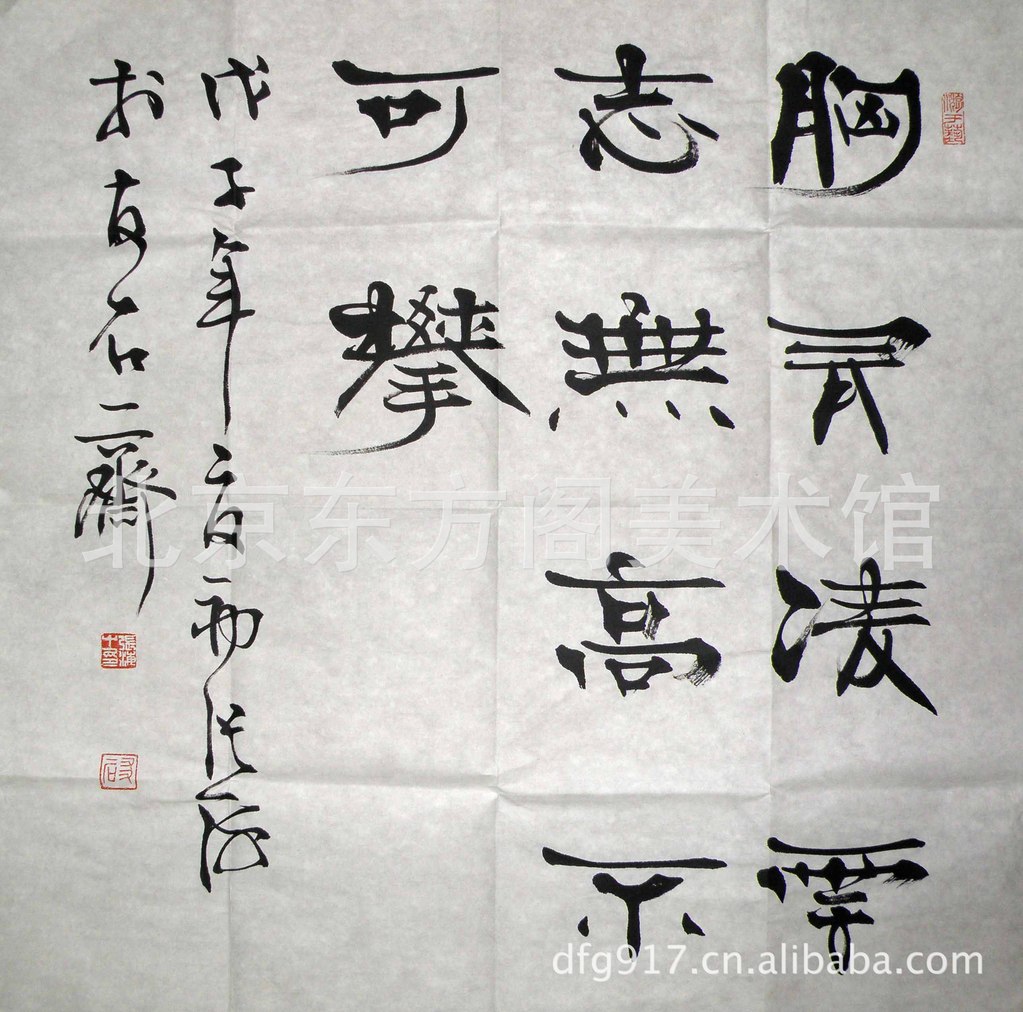 胸有凌雲
志無高不
可攀
戊子年夏初張海
於友石齋
北京东方阁美术馆
dfg917.cn.alibaba.com